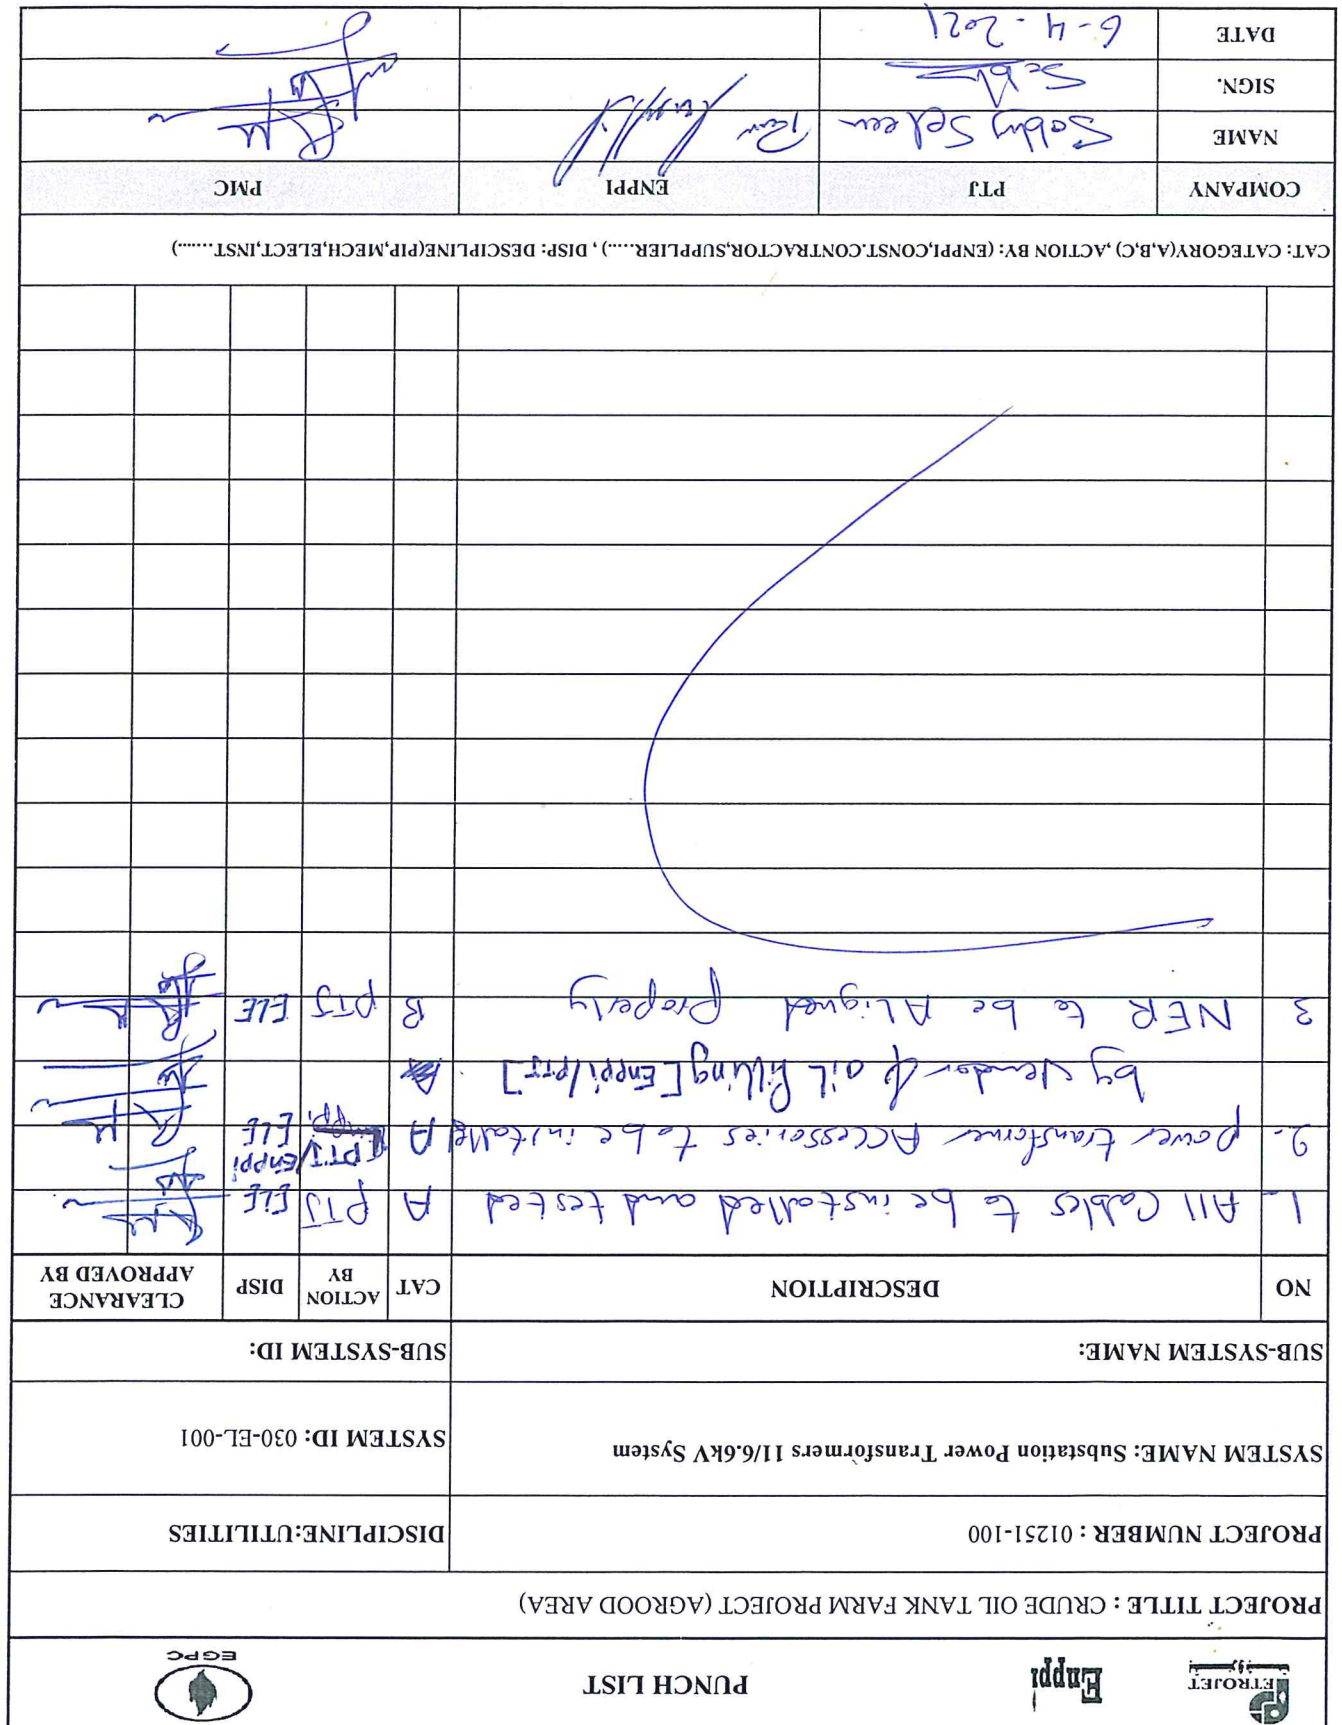 PETROJET
Enppi
PUNCH LIST
EGPC
PROJECT TITLE : CRUDE OIL TANK FARM PROJECT (AGROOD AREA)
PROJECT NUMBER : 01251-100 DISCIPLINE:UTILITIES
SYSTEM NAME: Substation Power Transformers 11/6.6kV System SYSTEM ID: 030-EL-001
SUB-SYSTEM NAME: SUB-SYSTEM ID:
NO DESCRIPTION CAT ACTION BY DISP CLEARANCE APPROVED BY
1- All Cables to be installed and tested A PTJ ELE
2- power transformer Accessories to be installed A PTJ/Enppi ELE
by vendor & oil filling [Enppi/PTJ]
3 NER to be Aligned properly B PTJ ELE
CAT: CATEGORY(A,B,C) ,ACTION BY: (ENPPI,CONST.CONTRACTOR,SUPPLIER.....) , DISP: DESCIPLINE(PIP,MECH,ELECT,INST.......)
COMPANY PTJ ENPPI PMC
NAME Sobhy
SIGN.
DATE 6-4-2021